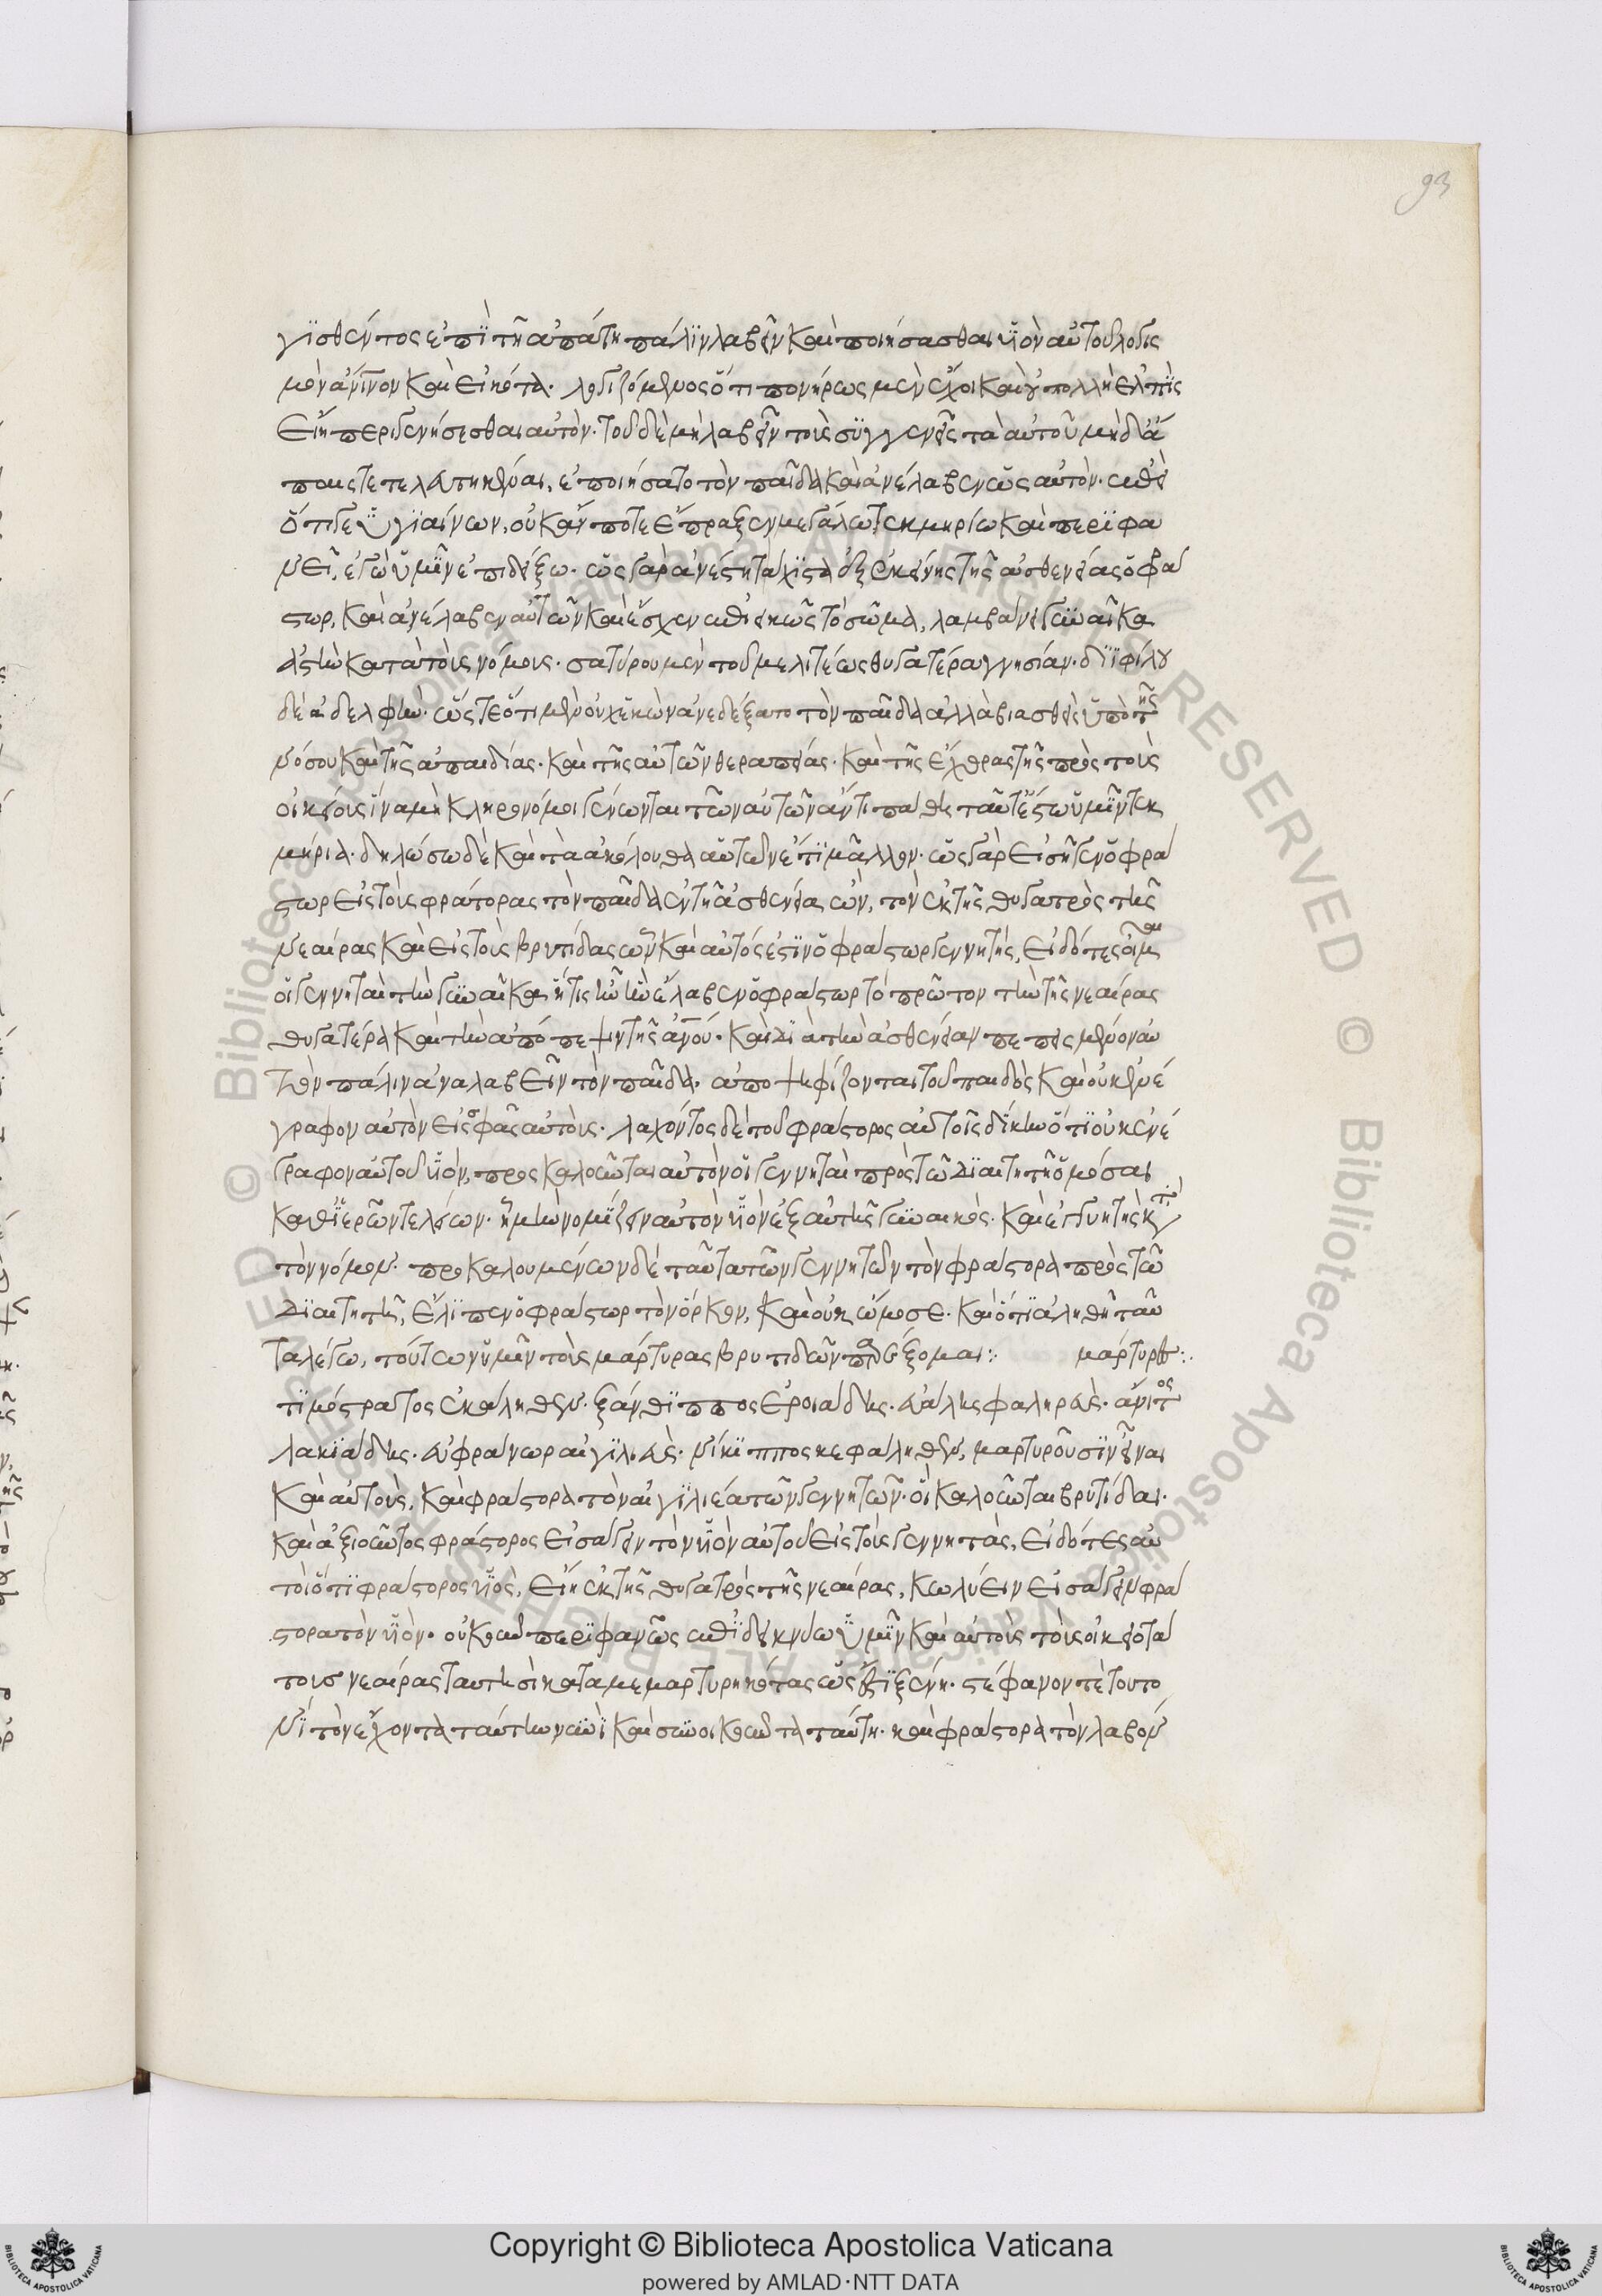 γϊσθέντος ἐπῒ τῆ ἀπάτη πάλϊν λαβεῖν καὶ ποιήσασθαι υἱὸν αὑτοῦ λογισ
μὸν ἀνῖνον καὶ εἰκότα. λογιζόμενος ὅτι πονήρως μὲν ἔχοι καὶ οὐ πολλὴ ἐλπῒς
εἴη περιγενήσεσθαι αὐτόν. τοῦ δὲ μὴ λαβεῖν τοὺς συγγενεῖς τὰ αὑτοῦ μηδ' ἄ
παις τετελευτηκέναι, ἐποιήσατο τὸν παῖδα καὶ ἀνέλαβεν ὡς αὑτόν. ἐπεὶ
ὅτι γε ὑγϊαίνων, οὐκ ἄν ποτε ἔπραξεν μεγάλω τεκμηρίω καὶ περϊφα
νεῖ, ἐγὼ ὑμῖν ἐπιδείξω. ὡς γὰρ ἀνέστη τάχϊστα ἐξ ἐκείνης τῆς ἀσθενείας ὁ φρά
στωρ, καὶ ἀνέλαβεν αὑτὸν καὶ ἔσχεν ἐπιεικῶς τὸ σῶμα, λαμβάνει γυναῖκα
ἀστὴν κατὰ τοὺς νόμους. σατύρου μὲν τοῦ μελιτέως θυγατέρα γνησίαν. δϊφίλου
δὲ ἀδελφήν. ὥστε ὅτι μὲν οὐχ ἑκὼν ἀνεδέξατο τὸν παῖδα ἀλλὰ βιασθεὶς ὑπὸ τῆς
νόσου καὶ τῆς ἀπαιδίας. καὶ τῆς αὐτῶν θεραπείας. καὶ τῆς ἔχθρας τῆς πρὸς τοὺς
οἰκείους ἵνα μὴ κληρονόμοι γένωνται τῶν αὑτῶν ἄν τι πάθη ταῦτ' ἔστω ὑμῖν τεκ
μήρια. δηλώσω δὲ καὶ τὰ ἀκόλουθα αὐτῶν ἔτϊ μᾶλλον. ὡς γὰρ εἰσῆγεν ὁ φρά
στωρ εἰς τοὺς φράτορας τὸν παῖδα ἐν τῆ ἀσθενεία ὢν, τὸν ἐκ τῆς θυγατρὸς τῆς
νεαίρας καὶ εἰς τοὺς βρυτίδας ὧν καὶ αὐτός ἐστϊν ὁ φράστωρ γεννητής, εἰδότες οἶμαι
οἱ γεννηταὶ τὴν γυναῖκα ἥτις ἦν ἣν ἔλαβεν ὁ φράστωρ τὸ πρῶτον τὴν τῆς νεαίρας
θυγατέρα καὶ τὴν ἀπόπεμψιν τῆς ἀνοῦ. καὶ δϊὰ τὴν ἀσθένειαν πεπεισμένον αὐ
τὸν πάλιν ἀναλαβεῖν τὸν παῖδα. ἀποψηφίζονται τοῦ παιδὸς καὶ οὐκ ἐνέ
γραφον αὐτὸν εἰς σφᾶς αὐτούς. λαχόντος δὲ τοῦ φράστορος αὐτοῖς δίκην ὅτϊ οὐκ ἐνέ
γραφον αὑτοῦ υἱόν, προσκαλοῦνται αὐτὸν οἱ γεννηταὶ πρὸς τῶ δϊαιτητῆ ὀμόσαι
καθ' ἱερῶν τελείων. ἦ μὴν νομίζειν αὐτὸν υἱὸν ἐξ αὐτῆς γυναικὸς. καὶ ἐγγυητῆς κατὰ
τὸν νόμον. προκαλουμένων δὲ ταῦτα τῶν γεννητῶν τὸν φράστορα πρὸς τῶ
δϊαιτητῆ, ἔλϊπεν ὁ φράστωρ τὸν ὅρκον, καὶ οὐκ ὤμοσε. καὶ ὅτϊ ἀληθῆ ταῦ
τα λέγω, τούτων ὑμῖν τοὺς μάρτυρας βρυτιδῶν παρέξομαι:· μάρτυρες:·
τϊμόστρατος ἑκάληθεν. ξάνθϊππος ἐροιάδης. εὐάλκης φαληρεὺς. ἄνιτος
λακϊάδης. εὐφράνωρ αἰγϊλιεὺς. νίκϊππος κεφαλῆθεν, μαρτυροῦσϊν εἶναι
καὶ αὐτοὺς, καὶ φράστορα τὸν αἰγϊλιέα τῶν γεννητῶν. οἳ καλοῦνται βρυτίδαι.
καὶ ἀξιοῦντος φράστορος εἰσάγειν τὸν υἱὸν αὑτοῦ εἰς τοὺς γεννητάς, εἰδότες αὐ
τοὶ ὅτϊ φράστορος υἱὸς, εἴη ἐκ τῆς θυγατρὸς τῆς νεαίρας, κωλύειν εἰσάγειν φρά
στορα τὸν υἱόν. οὐκοῦν περϊφανῶς ἐπϊδεικνύω ὑμῖν καὶ αὐτοὺς τοὺς οἰκειοτά
τους νεαίρας ταυτησὶ καταμεμαρτυρηκότας ὡς ἔστϊ ξένη. στέφανόν τε τουτο
νῒ τὸν ἔχοντα ταύτην νυνῒ καὶ συνοικοῦντα ταύτη. καὶ φράστορα τὸν λαβόν